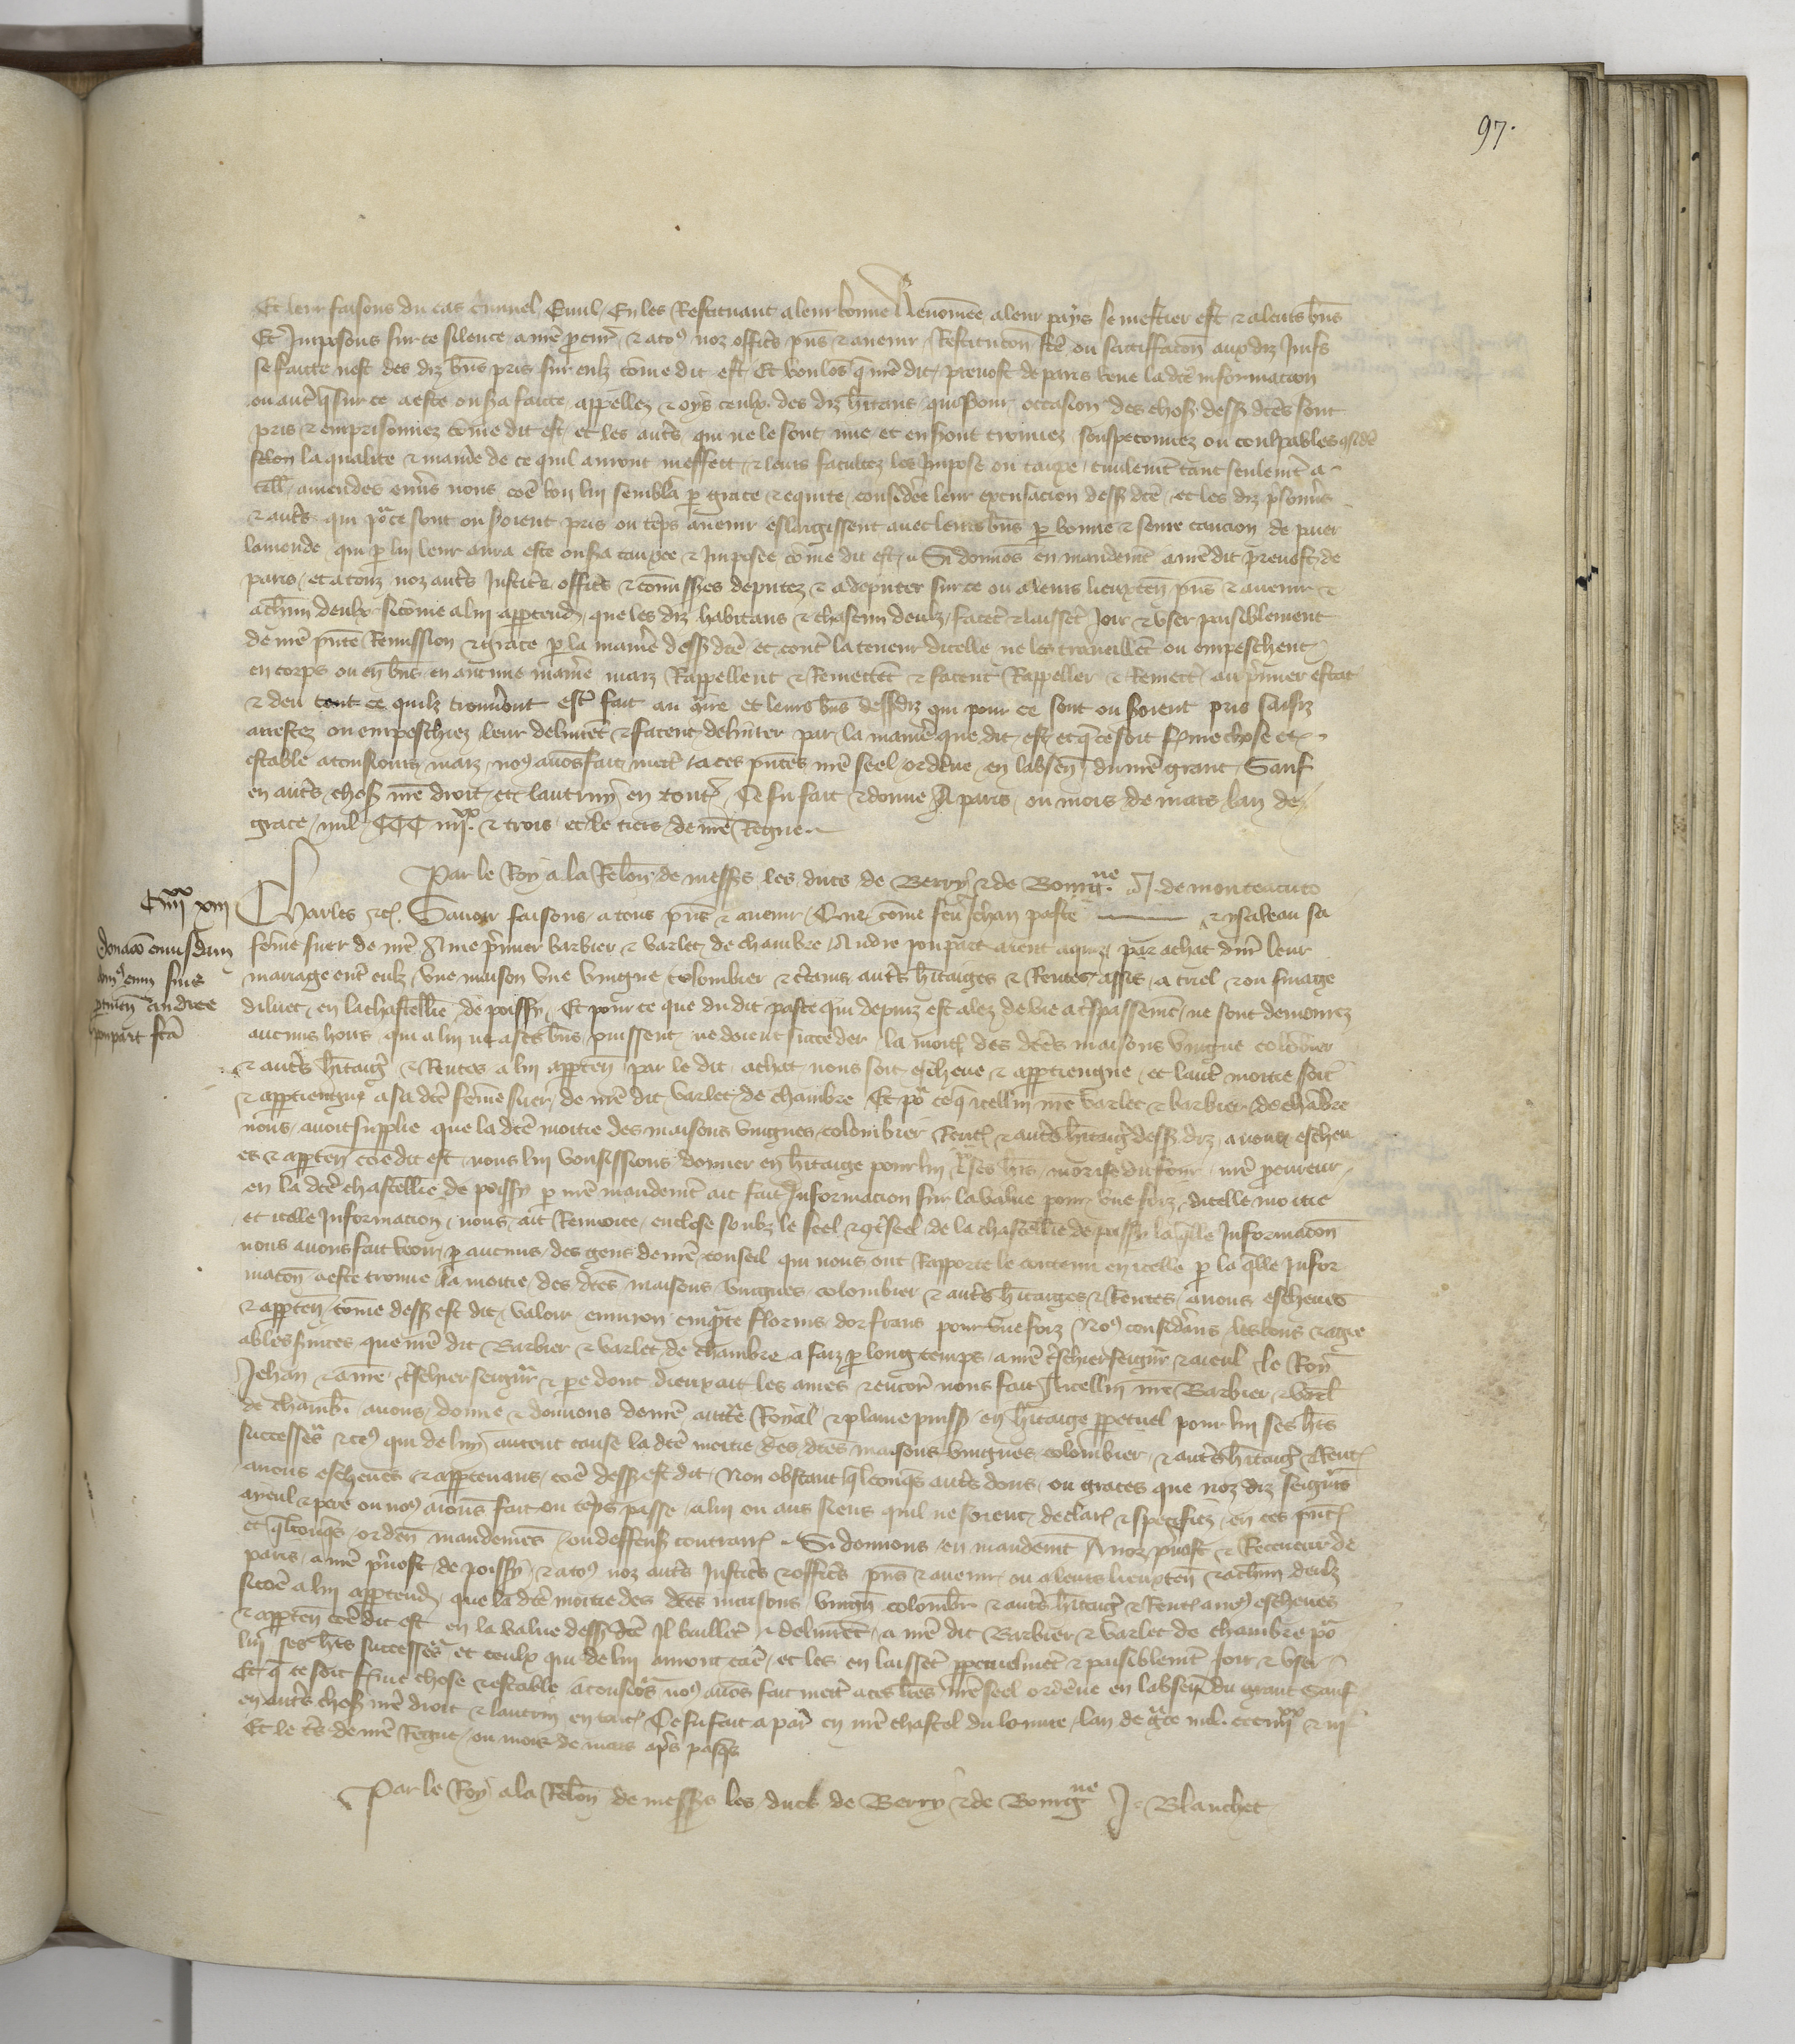 97.
Et leur faisons du cas criminel Civil En les Restituant a leur bonne Renommee a leur pays se mestier est & a leurs biens
Et Imposons sur ce silence a nre procur & a to9 noz offic̃s pñs & avenir Restitucoñ fcẽ ou satiffacoñ aux diz Juifs
se faicte nest des diz biens pris sur eulx cõme dit est Et voulons q nre dit prevost de paris voie la dcẽ informacion
ou autre q sur ce a este ou sera faicte appellez & oys ceulx des diz hitans qui pour occasion des choses dess dcẽs sont
pris & emprisonnez cõme dit est et les autres qui ne le sont mie et en seront trouvez souspeconnez ou coulpables
selon la qualite & maniere de ce quil auront meffait & leurs facultez les Impose ou tauxe civilemt tant seulemt a
telle amendes envers nous cõe bon lui semblera p grace & equite considere leur excusacion dess dcẽ et les diz prisonñs
& autres qui pour ce sont ou seront pris ou tẽps avenir eslargissent avec leurs biens p bonne & seure caucion de paier
lamende qui p lui leur aura este ou sera tauxee & Imposee cõme dit est Si donnons en mandemt a nre dit prevost de
paris et a touz noz autres Justiciers offic̃s & cõmissres deputez & a deputer sur ce ou a leurs lieuxteñ pñs & avenir &
a chũn deulx si cõme a lui apptendra que les diz habitans & chascun deulz facent & laissent Joir & user paisiblement
de nre pñte Remission & grace p la maniere dess dcẽ et contre la teneur dicelle ne les travaillent ou empeschent
en corps ou en biens en aucune maniere maiz Rappellent & Remettent & facent Rappeller & Remettre au premier estat
& deu tout ce quilz trouveront estre fait au contraire et leurs biens dessdiz qui pour ce sont ou seroient pris saisiz
arrestez ou empeschiez leur delivrent & facent delivrer par la maniere que dit est et q ce soit ferme chose et
estable a tousiours maiz no9 avons fait mettre a ces pñtes nre seel ordene en labseñ du nre grant Sauf
en autres choses nre droit et lautruy en toutes Ce fu fait & donne A paris ou mois de mars lan de
grace mil CCC iiiixx & trois et le tiers de nre Regne
Par le Roy a la Reloñ de messrs les ducs de Berry & de Bourgne J. de monteacuto
Ciiiixx xiii
Donaco cuiusdam
Andree
poupart fcã
Charles &c. Savoir faisons a tous pñs & avenir Que cõme feu Jehan paste & ysabeau sa
femẽ suer de nre Ame premier barbier & varlet de chambre Andre poupart aient aquis par achat durant leur
mariage entre eulz une maison une vingne colombier & certains autres hitaiges & Rentes assis a triel & ou finage
diluec en la chastellie de poissy Et pour ce que du dit paste qui depuiz est alez de vie a trespassemt ne sont demourez
aucuns hoirs qui a lui ne a ses biens puissent ne doient succeder la moitie des dctes maisons vingne colõbier
& autres hitaiges & Rentes a lui apptẽn par le dit achat nous soit escheue & apptiengne et lautre moitie soit
& apptiengne a sa dcẽ femẽ suer de nre dit varlet de chambre Et pour ce q icellui nre varlet & barbier de chãbre
nous avoit supplie que la dcẽ moitie des maisons vingnes colombier Rentes & autres hitaiges dess diz a nous escheu
es & apptẽn cõe dit est nous lui voulsissions donner en hitaige pour lui & ses hrs nre procureur
en la dcẽ chastellie de poissy p nre mandemt ait fait Informacion sur la value pour une foiz dicelle moitie
et icelle Informacion nous ait Renvoiee enclose soubz le seel & contreseel de la chastellie de poissy la quelle Informacoñ
nous avons fait veoir p aucuns des gens de nre conseil qui nous ont Rapporte le contenu en icelle p la qlle Infor
macoñ a este trouve la moitie des dctes maisons vingnes colombier & autres hitaiges & Rentes a nous escheues
& apptẽn cõme dess est dit valoir environ cinqte florins dor frans pour une foiz No9 considerans les bons & agre
ables services que nre dit Barbier & varlet de chambre a faiz p long temps a nre treschier seigneur & aieul le Roy
Jehan & a nre treschier seigneur & pere dont dieux ait les ames & encore nous fait A icellui nre Barbier & varlet
de chamb. avons donne & donnons de nre auctte Royal & plaine puiss en hitaige perpetuel pour lui ses hrs
successrs & ceulx qui de luy auront cause la dcẽ moitie des dctes maisons vingnes colombier & autres hitaiges & Rentes
a nous escheues & apptenans cõe dess est dit Non obstant qlconqs autres dons ou graces que noz diz seignrs
ayeul & pere ou no9 aions fait ou tẽps passe a lui ou aus siens quil ne soient declarez & specifiez en ces pñtes
et qlconqs ordẽn mandemẽs ou deffenses contraires Si donnons en mandemt A noz prevost & Receveur de
paris a nre prevost de poissy & a to9 noz autres Justiciers & offic̃s pñs & avenir ou a leurs lieuxteñ & a chũn deulz
si cõe a lui apptendra que la dcẽ moitie des dctes maisons vingñ colombier & autres hitaiges & Rentes a no9 escheues
& apptẽn cõe dit est en la value dess dcẽ Il baillent & delivrent a nre dit Barbier & varlet de chambre pour
lui ses hrs successrs et ceulx qui de lui auront cause et les en laissent perpetuelmt & paisiblemt Joir & user
Et q ce soit ferme chose & estable a tousiours no9 avons fait mettre a ces lres nre seel ordene en labseñ du grant Sauf
en autres choses nre droit & lautrui en toutes Ce fu fait a paris en nre chastel du louvre lan de grace mil ccc iiiixx & iii
Et le tiers de nre Regne ou mois de mars apres pasqs
Par le Roy a la Reloñ de messrs les ducs de Berry & de Bourgne J. Blanchet